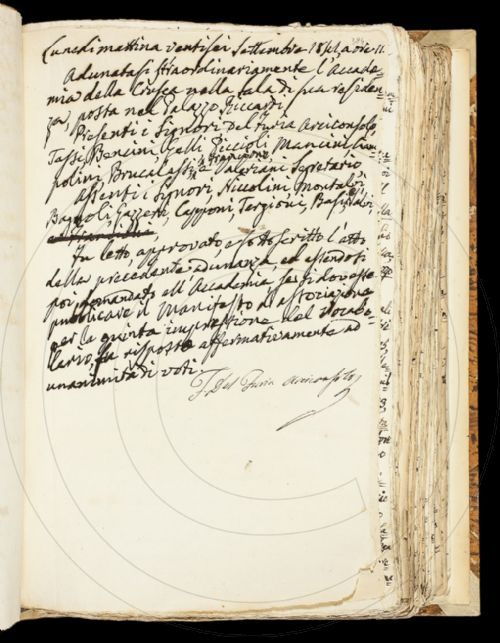 Lunedi mattina ventisei Settembre 1842, a ore 11.
Adunatasi straordinariamente l'Accade=
mia della Crusca nella sala di sua residen=
za, posta nel Palazzo Riccardi
Presenti i Signori Del Furia Arciconsolo,
Tassi, Bencini, Gelli, Piccioli, Mancini,
polini, Brucalassi, e Valeriani Segretario
Assenti i Signori, Niccolini, Montalvi,
Bagnoli, Gazzeri, Capponi, Targioni,
Fu letto, approvato, e sottoscritto l'atto
della precedente adunanza, ed essendosi
poi domandato all'Accademia se si dovesse
pubblicare il Manifesto di associazione
per la quinta impressione del Vocabo=
lario, fu risposto affermativamente ad
unanimità di voti.
F. Del Furia Arciconsolo